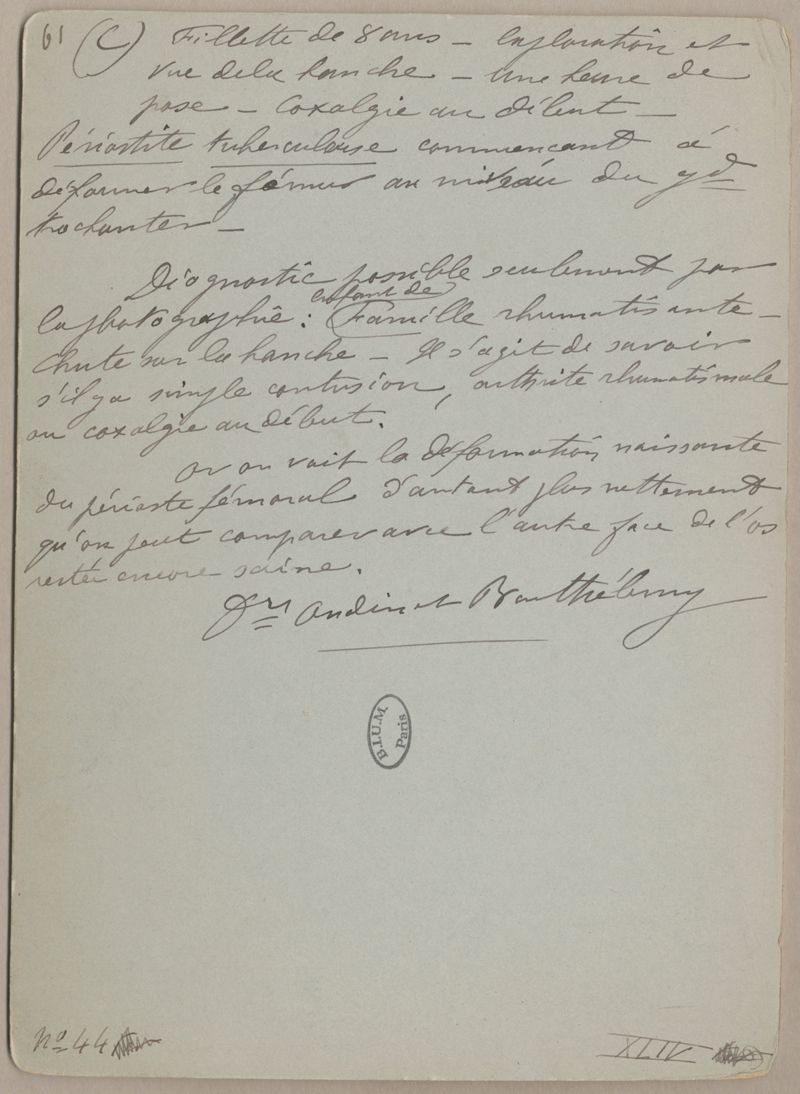 61 (C) Fillette de 8 ans – Exploration et
vue de la hanche – Une heure de
pose – Coxalgie au début –
Périostite tuberculeuse commençant à
déformer le fémur au niveau du gd
trochanter –
Diagnostic possible seulement par
la photographie : enfant de Famille rhumatisante –
Chute sur la hanche – Il s'agit de savoir
s'il y a simple contusion, arthrite rhumatismale
ou coxalgie au début.
Or on voit la déformation naissante
du périoste fémoral d'autant plus nettement
qu'on peut comparer avec l'autre face de l'os
restée encore saine.
Drs Oudin et Barthélemy
B.I.U.M. Paris
No 44
XLIV